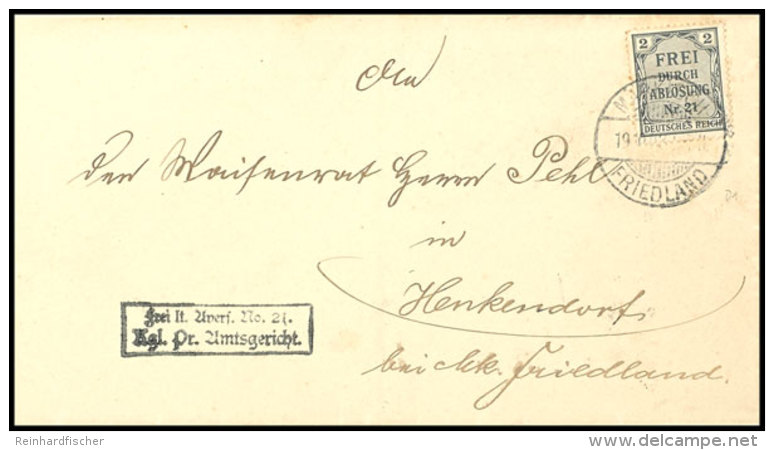 2 2
FREI
DURCH
ABLÖSUNG
Nr. 21
DEUTSCHES REICH
FRIEDLAND
An
den Waisenrat Herrn Pehl
in
Henkendorf
bei Mk. Friedland.
Frei lt. Avers. No. 21.
Kgl. Pr. Amtsgericht.
Reinhardfischer
delcampe.net